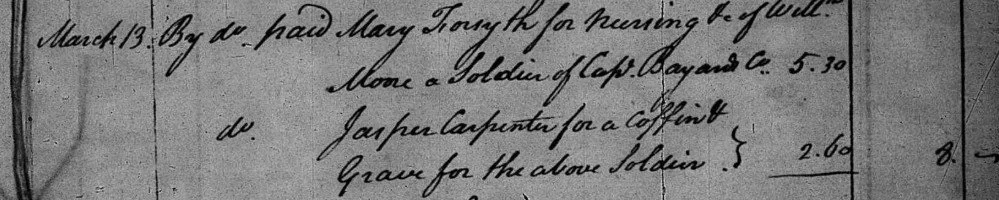 March 13. By do. paid Mary Forsyth for nursing &c of Willm
Moore a Soldier of Capt. Bayards Co. 5.30
do. Jasper Carpenter for a Coffin &
Grave for the above Soldier } 2.60 8. —